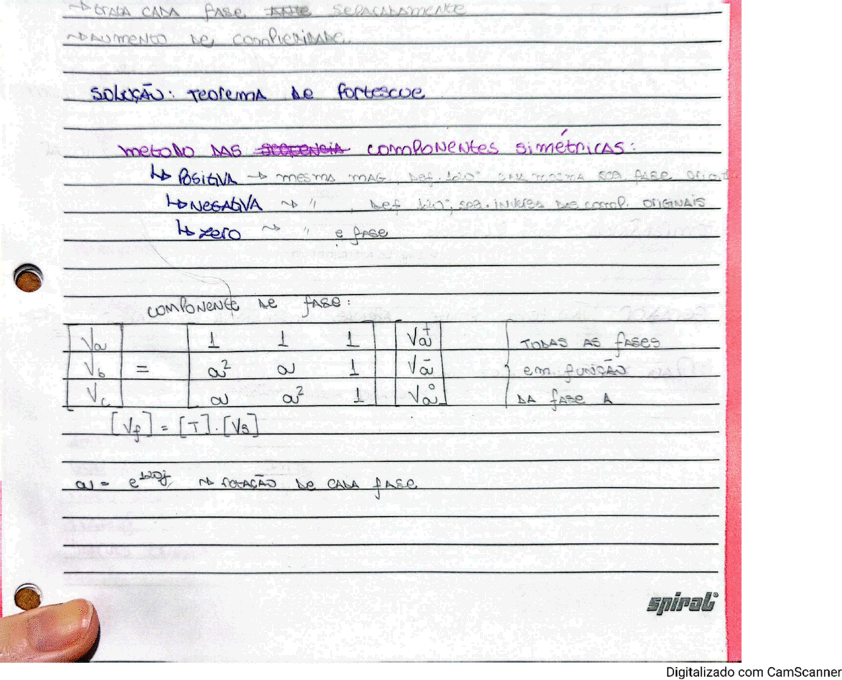 → TRATA CADA FASE SEPARADAMENTE
→ AUMENTO DE COMPLEXIDADE.
SOLUÇÃO: TEOREMA DE FORTESCUE
MÉTODO DAS SEQUENCIA COMPONENTES SIMÉTRICAS:
↳ POSITIVA → MESMA MAG., DEF. 120° MESMA SEQ. FASE
↳ NEGATIVA → " , DEF 120°, SEQ. INVERSA DAS COMP. ORIGINAIS
↳ ZERO → " E FASE
COMPONENTE DE FASE:
[Va] = [1 1 1] [Va⁺] TODAS AS FASES
[Vb] = [a² a 1] [Va⁻] EM FUNÇÃO
[Vc] = [a a² 1] [Va⁰] DA FASE A
[Vf] = [T].[Vs]
a = e^120j → ROTAÇÃO DE CADA FASE
spiral
Digitalizado com CamScanner